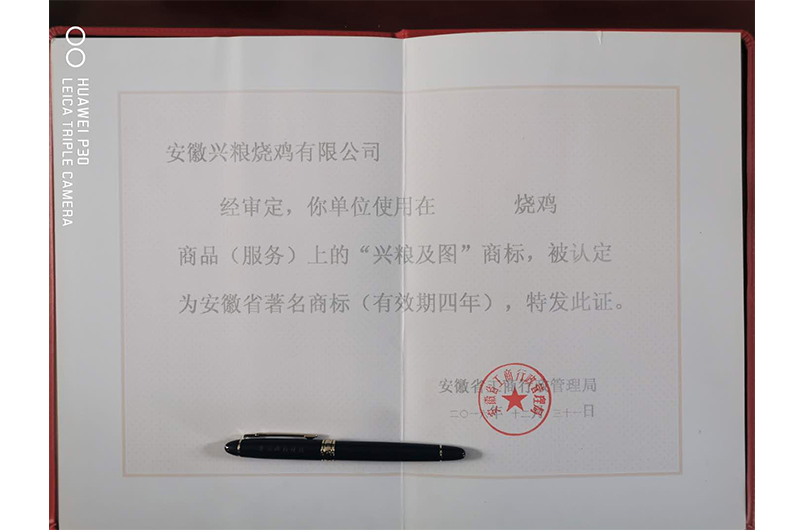 HUAWEI P30
LEICA TRIPLE CAMERA
安徽兴粮烧鸡有限公司
经审定，你单位使用在 烧鸡
商品（服务）上的“兴粮及图”商标，被认定
为安徽省著名商标（有效期四年），特发此证。
安徽省工商行政管理局
十二月三十一日